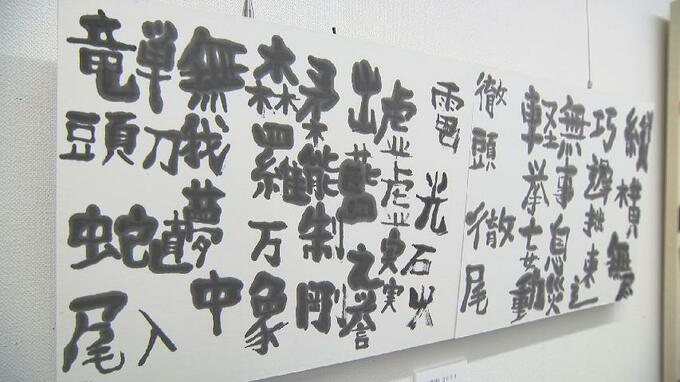 縦横無尽
巧遅拙速
無事息災
軽挙妄動
徹頭徹尾
電光石火
虚虚実実
出藍之誉
柔能制剛
森羅万象
無我夢中
単刀直入
竜頭蛇尾